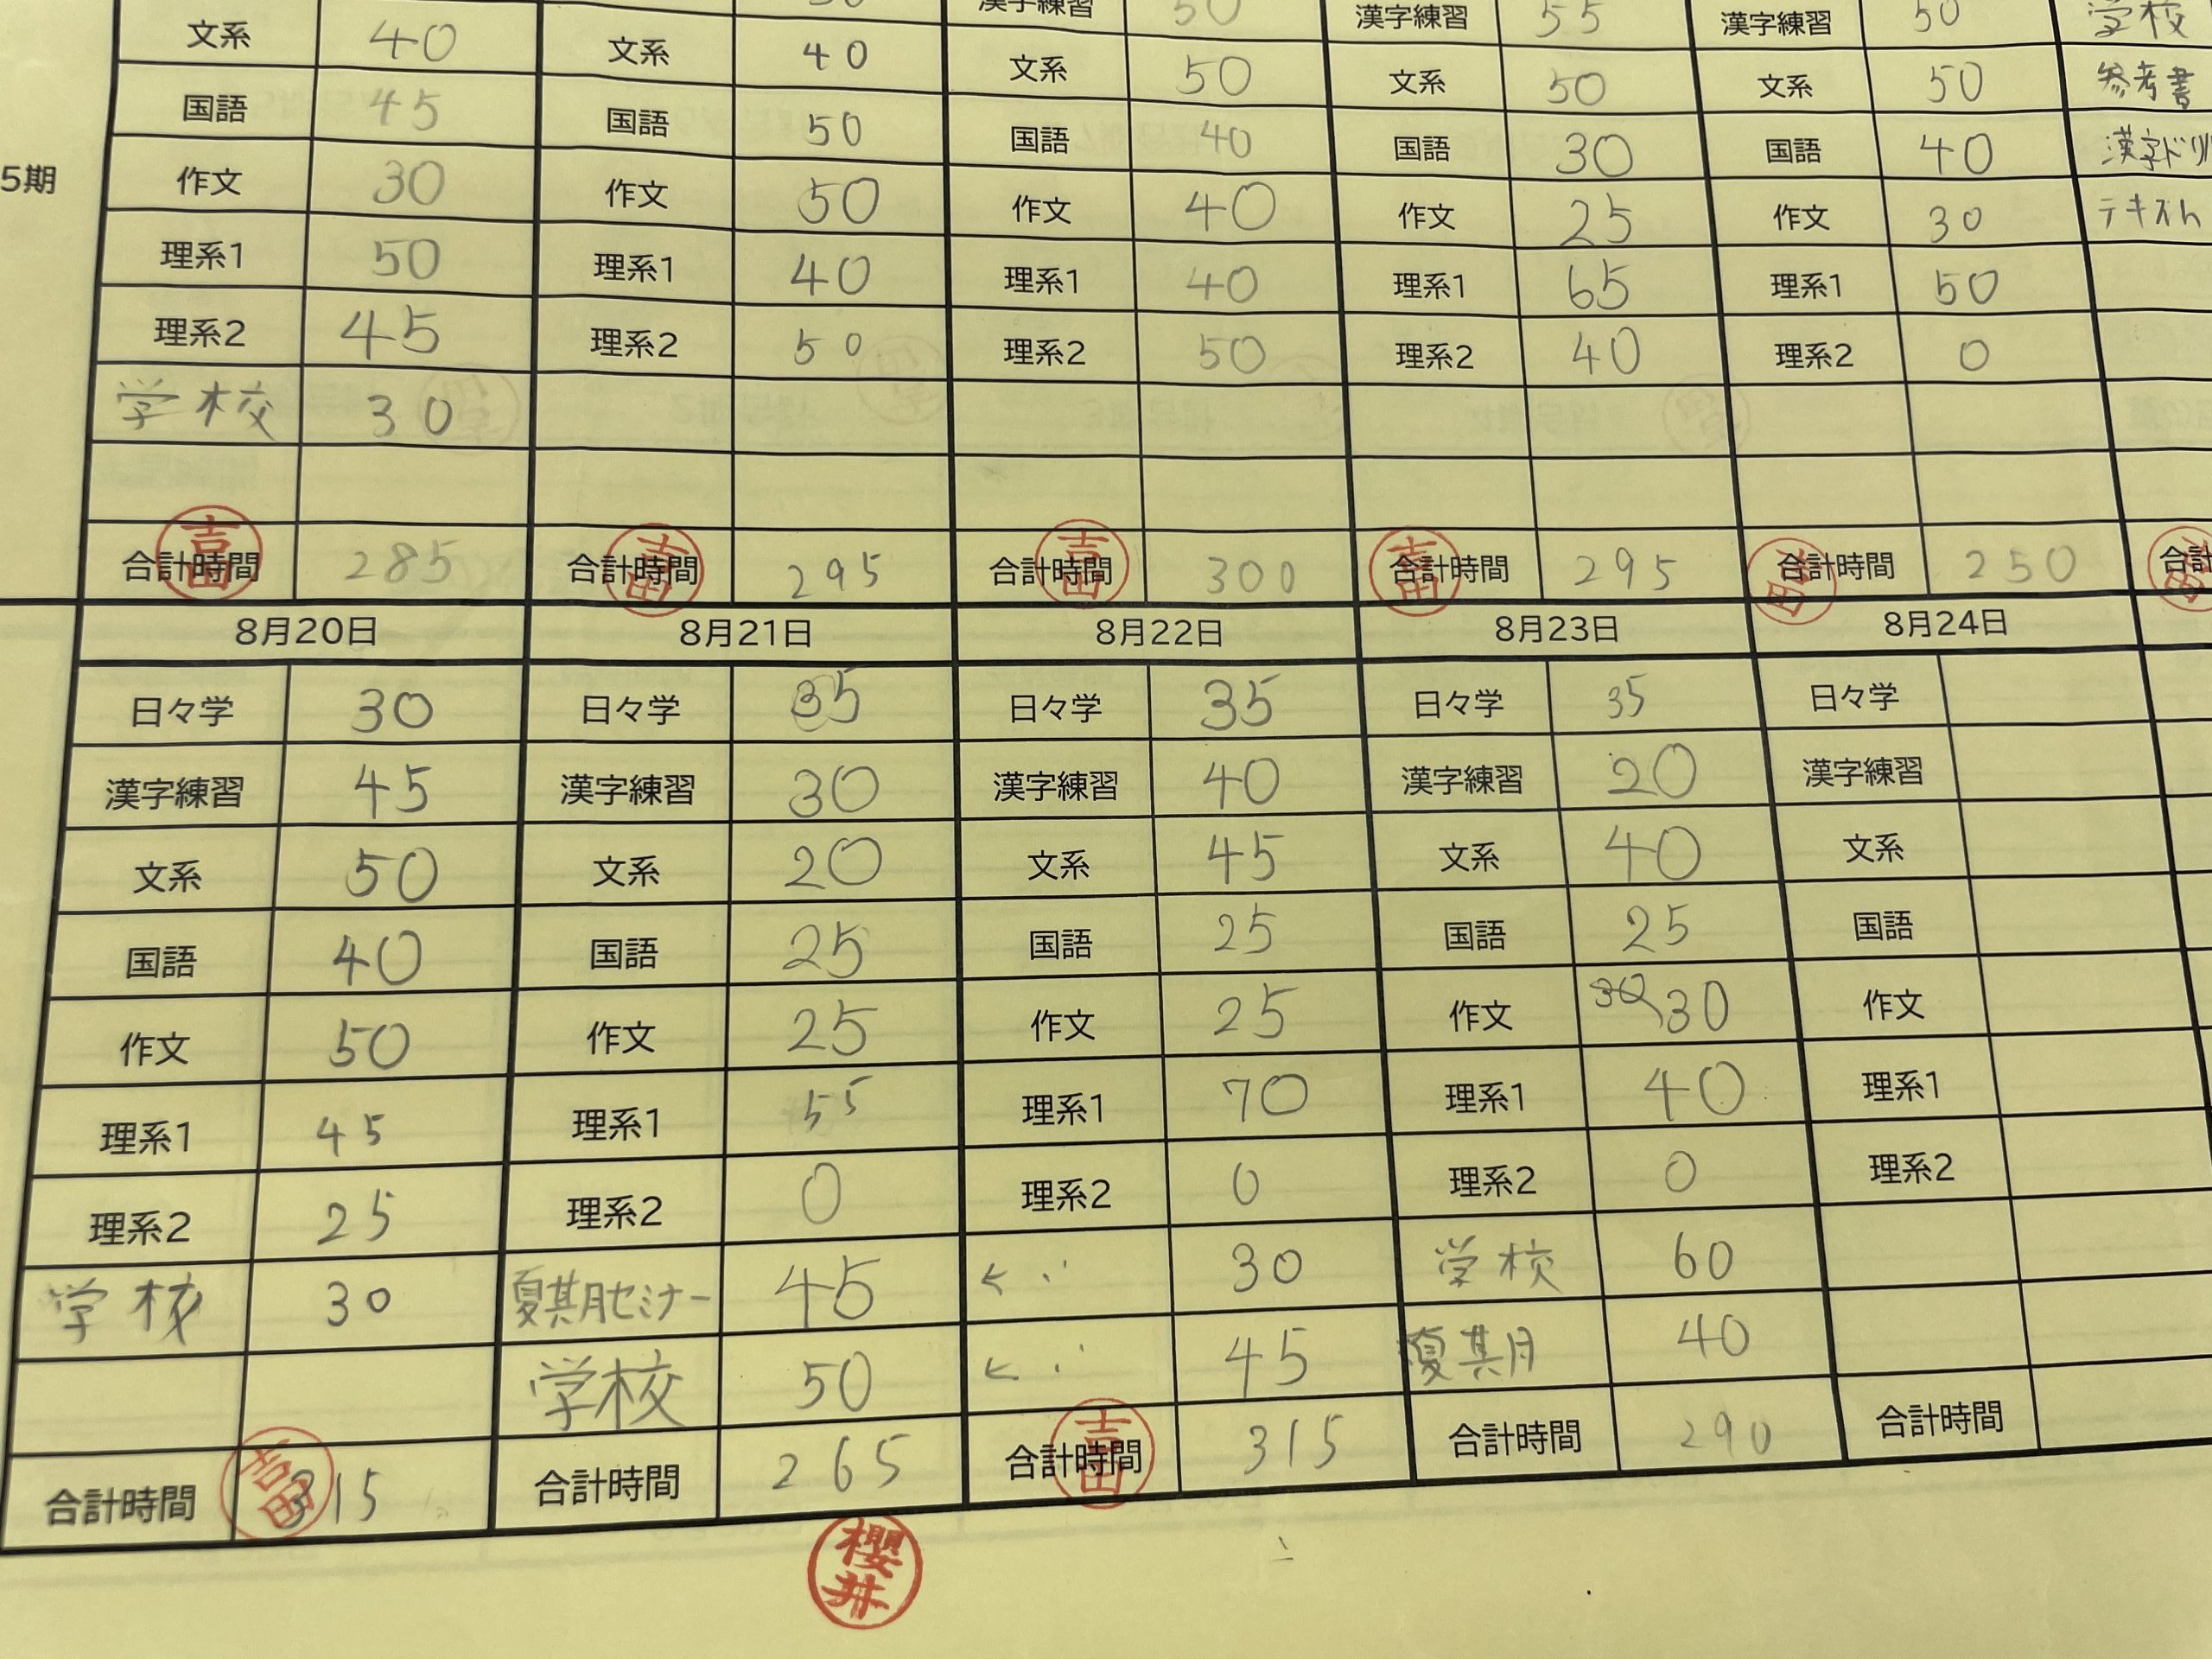 漢字練習 50 漢字練習 55 漢字練習 50 学校
文系 40 文系 40 文系 50 文系 50 文系 50 参考書
国語 45 国語 50 国語 40 国語 30 国語 40 漢字ドリル
5期 作文 30 作文 50 作文 40 作文 25 作文 30 テキスト
理系1 50 理系1 40 理系1 40 理系1 65 理系1 50
理系2 45 理系2 50 理系2 50 理系2 40 理系2 0
学校 30
合計時間 285 合計時間 295 合計時間 300 合計時間 295 合計時間 250 合計
吉田 吉田 吉田 吉田 吉田 吉田
8月20日 8月21日 8月22日 8月23日 8月24日
日々学 30 日々学 35 日々学 35 日々学 35 日々学
漢字練習 45 漢字練習 30 漢字練習 40 漢字練習 20 漢字練習
文系 50 文系 20 文系 45 文系 40 文系
国語 40 国語 25 国語 25 国語 25 国語
作文 50 作文 25 作文 25 作文 30 30 作文
理系1 45 理系1 55 理系1 70 理系1 40 理系1
理系2 25 理系2 0 理系2 0 理系2 0 理系2
学校 30 夏期セミナー 45 ← 〃 30 学校 60
学校 50 ← 〃 45 夏期 40
合計時間 315 合計時間 265 合計時間 315 合計時間 290 合計時間
吉田 吉田
櫻井